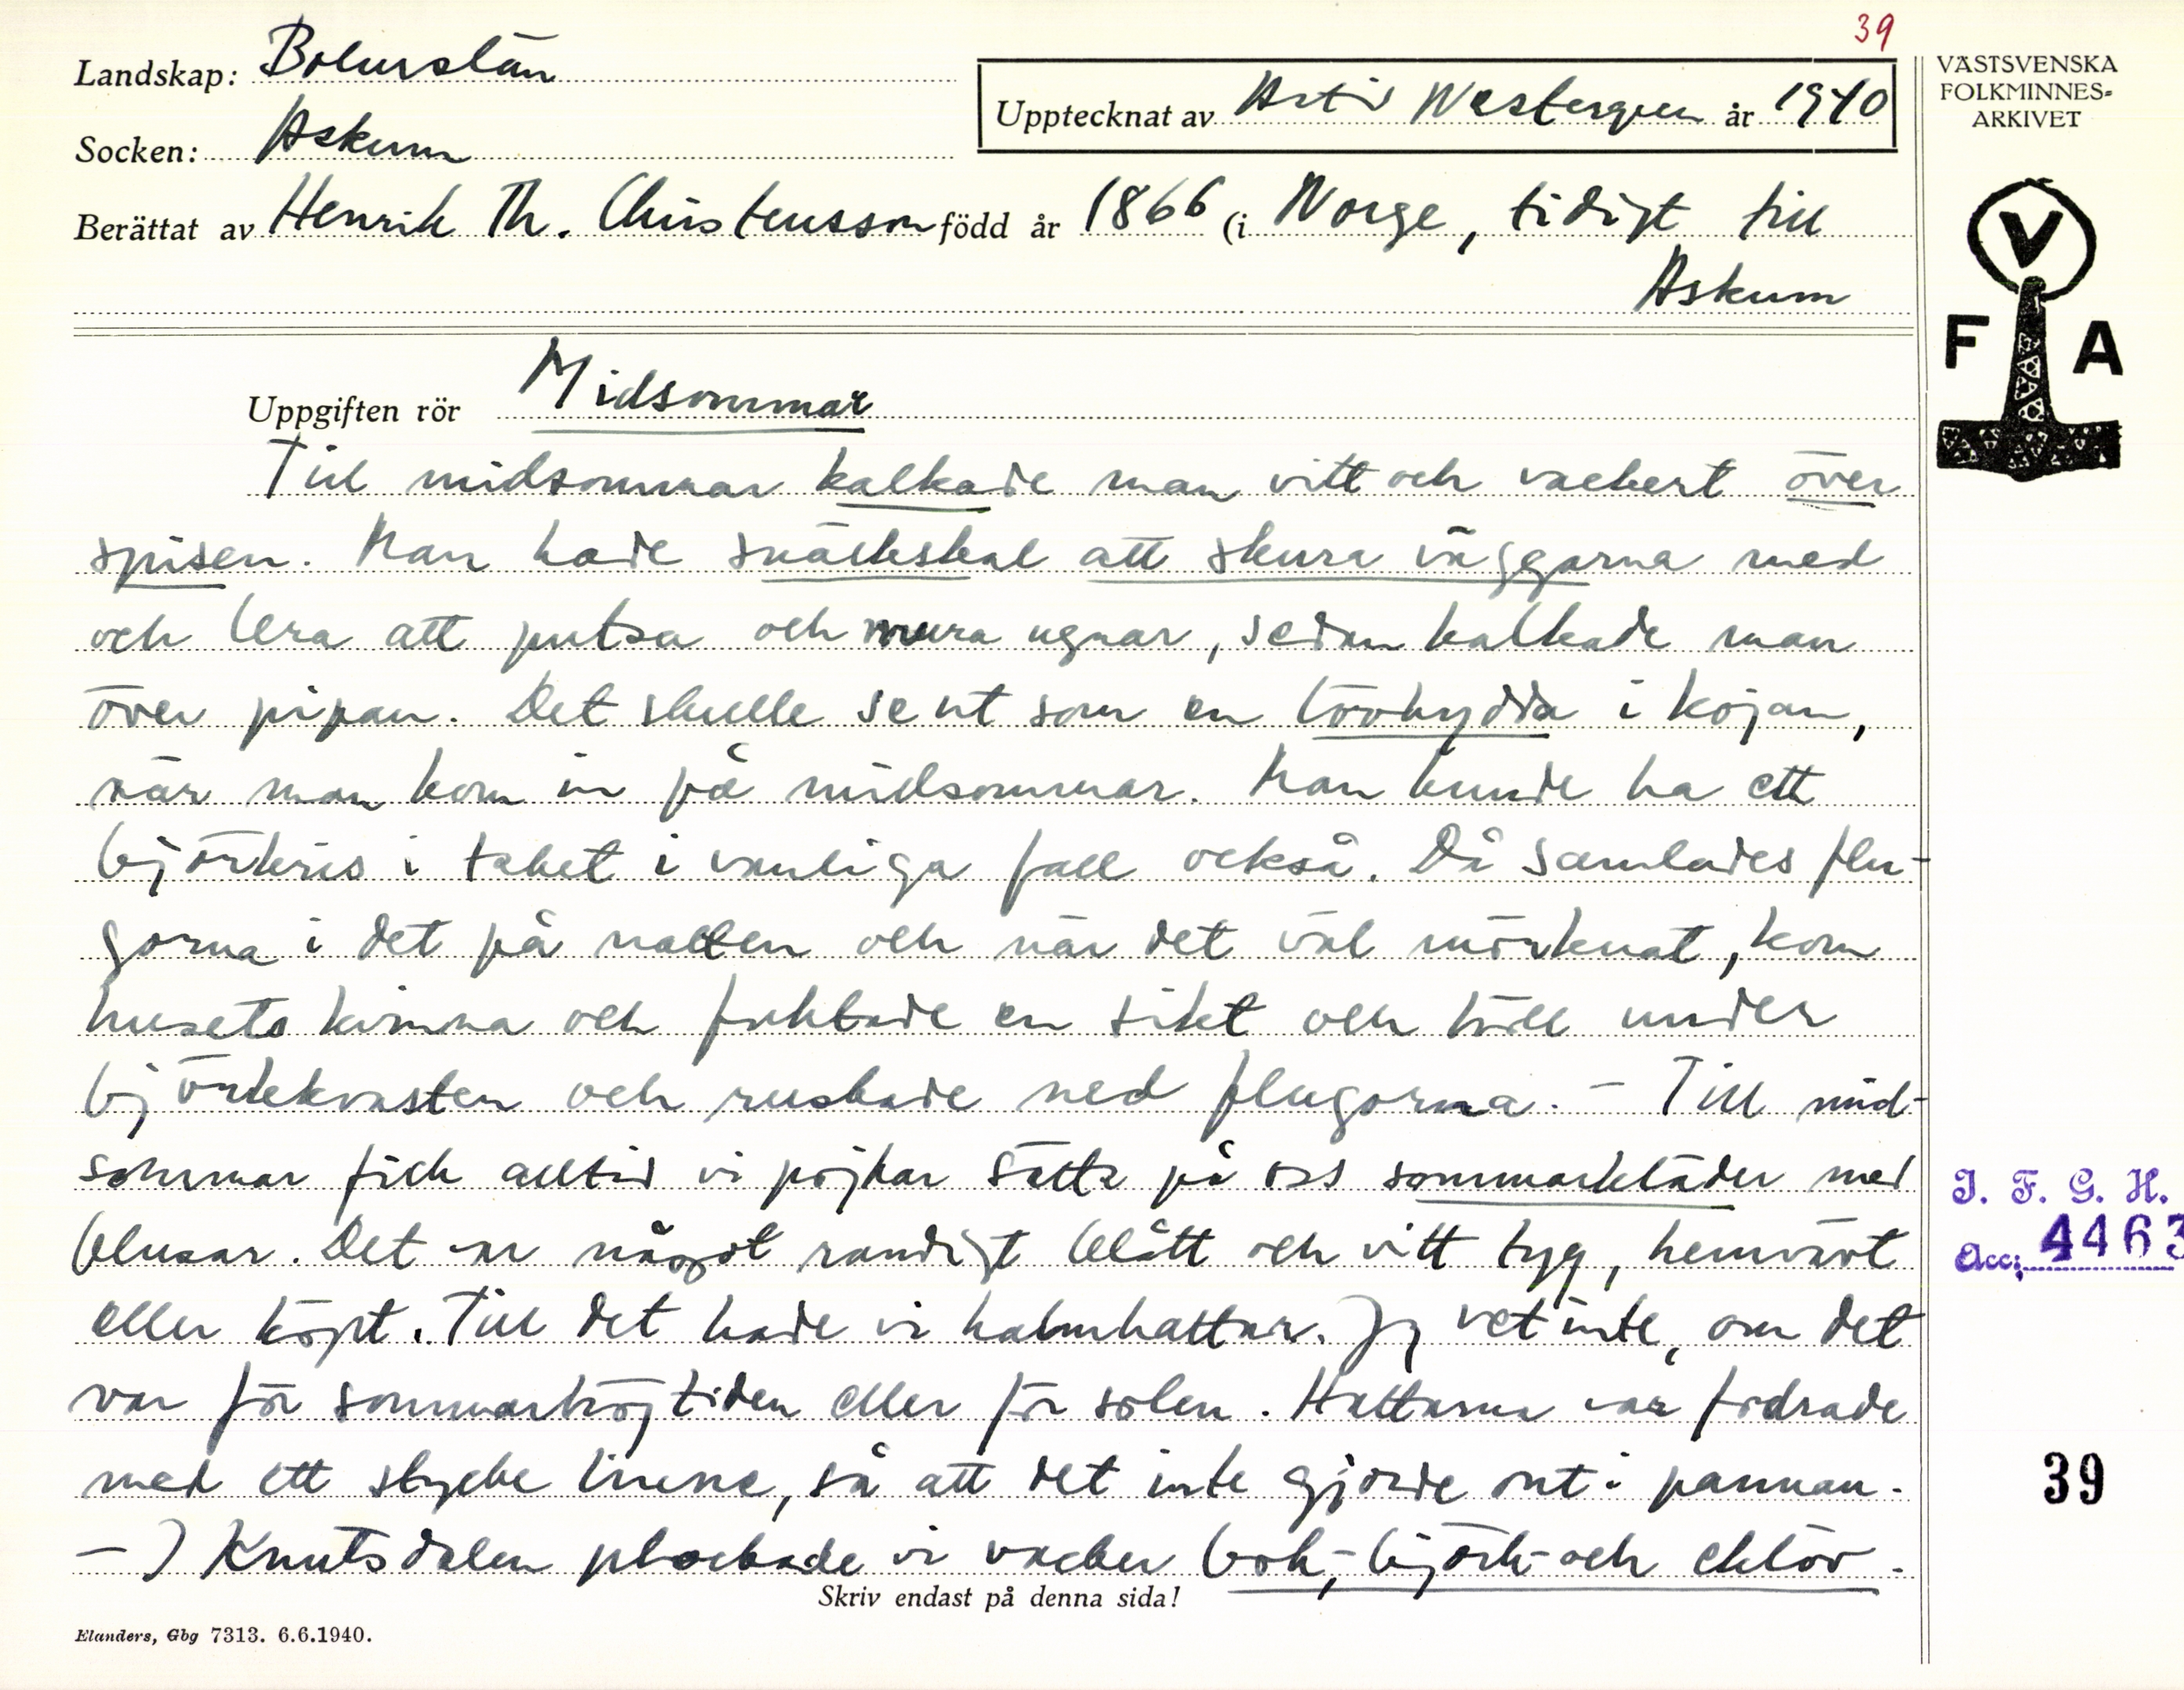 39
Landskap: Bohuslän
Socken: Askum
Upptecknat av Arvid Westergren år 1940
VÄSTSVENSKA
FOLKMINNES-
ARKIVET
Berättat av Henrik Th. Christensson född år 1866 (i Norge, tidigt till
Askum
V
F A
Uppgiften rör Midsommar
Till midsommar kalkade man vitt och vackert över
spisen. Man hade snäckskal att skura väggarna med
och lera att putsa och mura ugnar, sedan kalkade man
över pipan. Det skulle se ut som en lövhydda i kojan,
när man kom in på midsommar. Man kunde ha ett
björkris i taket i vanliga fall också. Då samlades flu-
gorna i det på natten och när det väl mörknat, kom
husets kvinna och fuktade en sikt och höll under
björkekvasten och ruskade ned flugorna. - Till mid-
sommar fick alltid vi pojkar sätta på oss sommarkläder med
blusar. Det var något randigt blått och vitt tyg, hemvävt
eller köpt. Till det hade vi halmhattar. Jag vet inte, om det
var för sommarhögtiden eller för solen. Hattarna var fodrade
med ett stycke linne, så att det inte gjorde ont i pannan.
- I Knutsdalen plockade vi vacker bok-, björk- och eklöv.
J. F. G. H.
Acc: 4463
39
Skriv endast på denna sida!
Elanders, Gbg 7313. 6.6.1940.